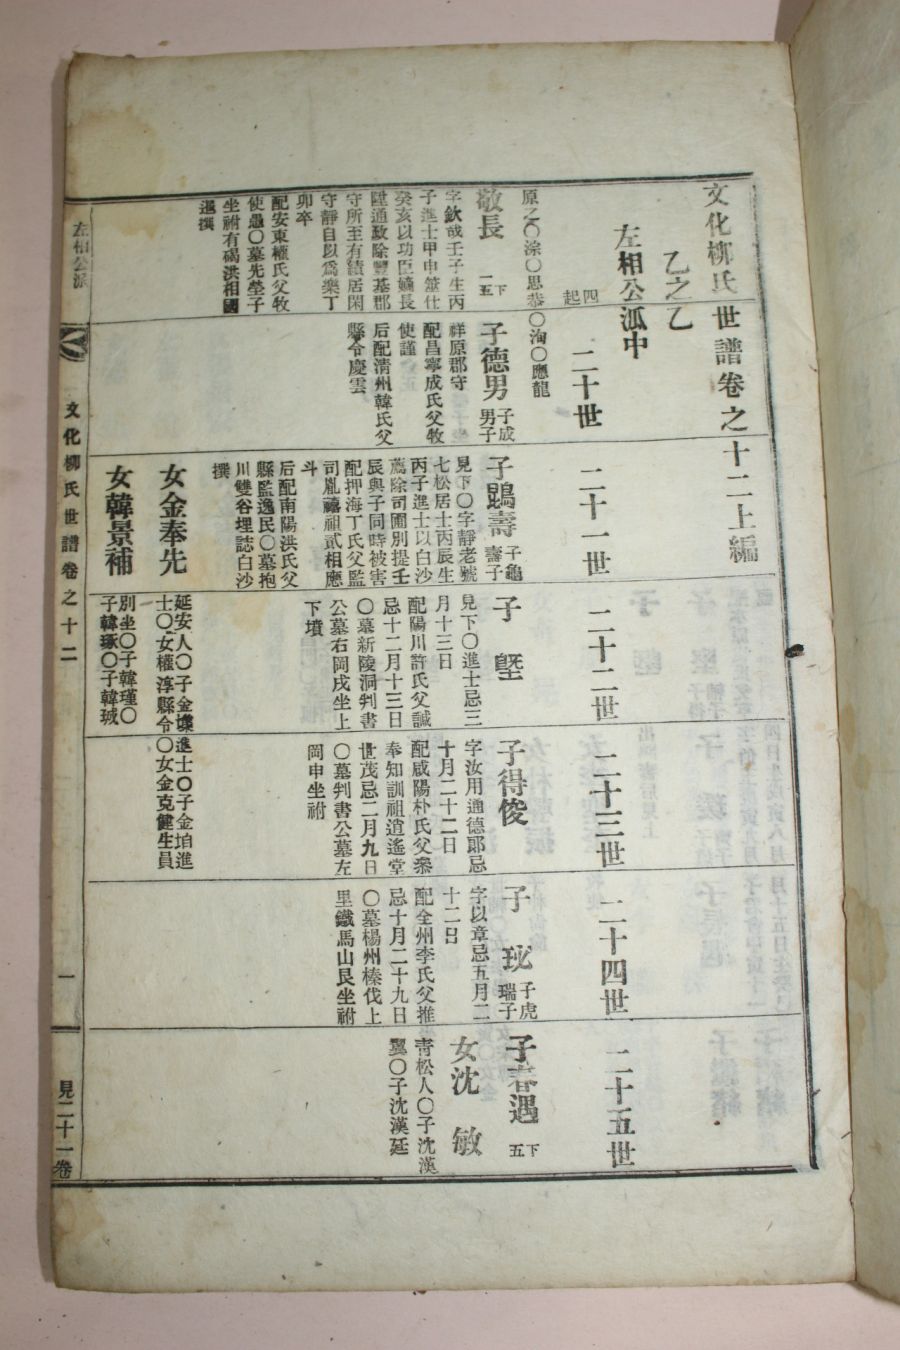 文化柳氏世譜卷之十二上編
乙之乙
左相公派中
四起
二十世
二十一世
二十二世
二十三世
二十四世
二十五世
原之〇淙〇思恭〇洵〇應龍
敬長
下一五
字欽哉壬子生丙
子進士甲申筮仕
癸亥以功臣嫡長
陞通政除豐基郡
守所至有績居閑
守靜自以爲樂丁
卯卒
配安東權氏父牧
使愚〇墓先塋子
坐祔有碣洪相國
暹撰
子德男
子成
男子
祥原郡守
配昌寧成氏父牧
使謹
后配清州韓氏父
縣令慶雲
子鵾壽
子龜
壽子
見下〇字靜老號
七松居士丙辰生
丙子進士以白沙
薦除司圃別提壬
辰與子同時被害
配押海丁氏父監
司胤禧祖貳相應
斗
后配南陽洪氏父
縣監逸民〇墓抱
川雙谷埋誌白沙
撰
女金奉先
女韓景補
子塈
見下〇進士忌三
月十三日
配陽川許氏父誠
忌十二月十三日
〇墓新陵洞判書
公墓右岡戌坐上
下墳
延安人〇子金㙉進士〇子金垍進
士〇女權淳縣令〇女金克健生員
別坐〇子韓瑾〇
子韓琢〇子韓珹
子得俊
字汝用通德郞忌
十月二十二日
配咸陽朴氏父衆
奉知訓祖逍遙堂
世茂忌二月九日
〇墓判書公墓左
岡申坐祔
子玧
子虎
瑞子
字以章忌五月二
十二日
配全州李氏父推
忌十月二十九日
〇墓楊州榛伐上
里鐵馬山艮坐祔
子春遇
下五
女沈敏
靑松人〇子沈漢
翼〇子沈漢廷
左相公派
文化柳氏世譜卷之十二
一
見二十一卷